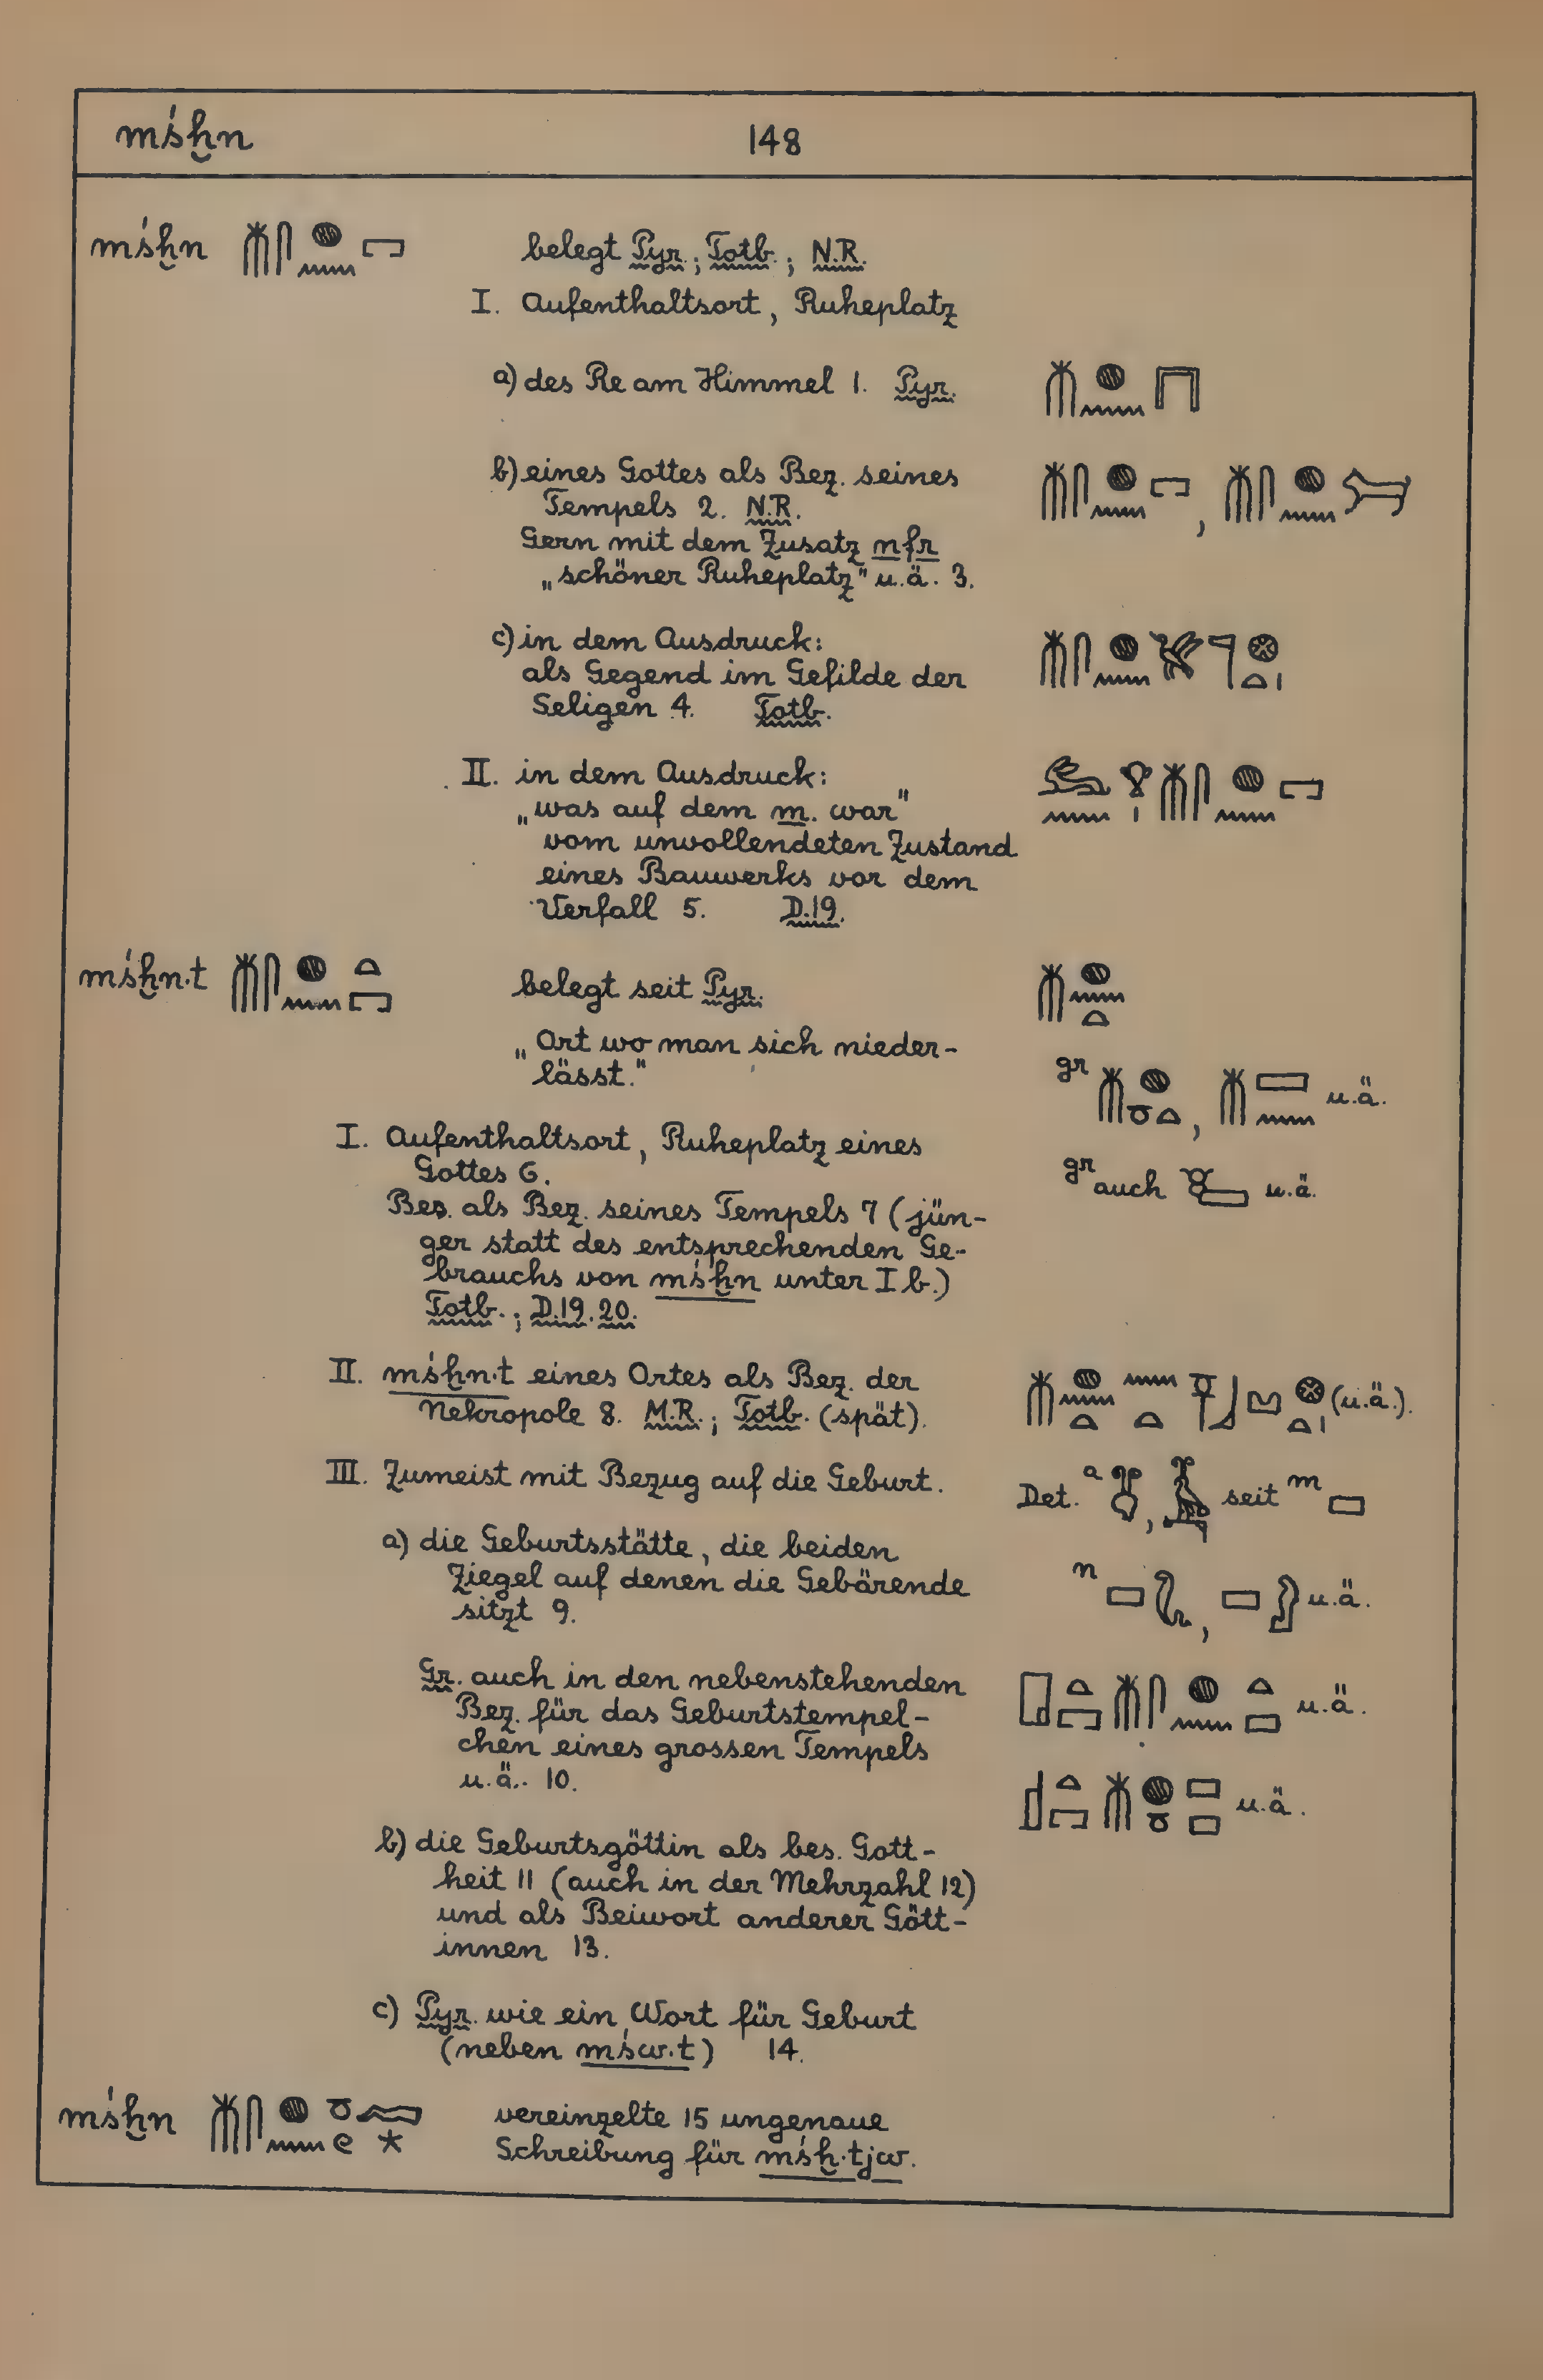 mśḫn 148
mśḫn belegt Pyr.; Totb.; N.R.
I. Aufenthaltsort, Ruheplatz
a) des Re am Himmel 1. Pyr.
b) eines Gottes als Bez. seines
Tempels 2. N.R.
Gern mit dem Zusatz nfr
„schöner Ruheplatz" u.ä. 3.
c) in dem Ausdruck:
als Gegend im Gefilde der
Seligen 4. Totb.
II. in dem Ausdruck:
„was auf dem m. war"
vom unvollendeten Zustand
eines Bauwerks vor dem
Verfall 5. D.19.
mśḫn·t belegt seit Pyr.
„Ort wo man sich nieder-
lässt."
gr , u.ä.
I. Aufenthaltsort, Ruheplatz eines
Gottes 6.
gr auch u.ä.
Bes. als Bez. seines Tempels 7 (jün-
ger statt des entsprechenden Ge-
brauchs von mśḫn unter I b.)
Totb.; D.19.20.
II. mśḫn·t eines Ortes als Bez. der
Nekropole 8. M.R.; Totb. (spät).
(u.ä.).
III. Zumeist mit Bezug auf die Geburt.
Det. a , seit m
a) die Geburtsstätte, die beiden
Ziegel auf denen die Gebärende
sitzt 9.
n , u.ä.
Gr. auch in den nebenstehenden
Bez. für das Geburtstempel-
chen eines grossen Tempels
u.ä. 10.
u.ä.
u.ä.
b) die Geburtsgöttin als bes. Gott-
heit 11 (auch in der Mehrzahl 12)
und als Beiwort anderer Gött-
innen 13.
c) Pyr. wie ein Wort für Geburt
(neben mśw.t) 14.
mśḫn vereinzelte 15 ungenaue
Schreibung für mśḫ·tjw.